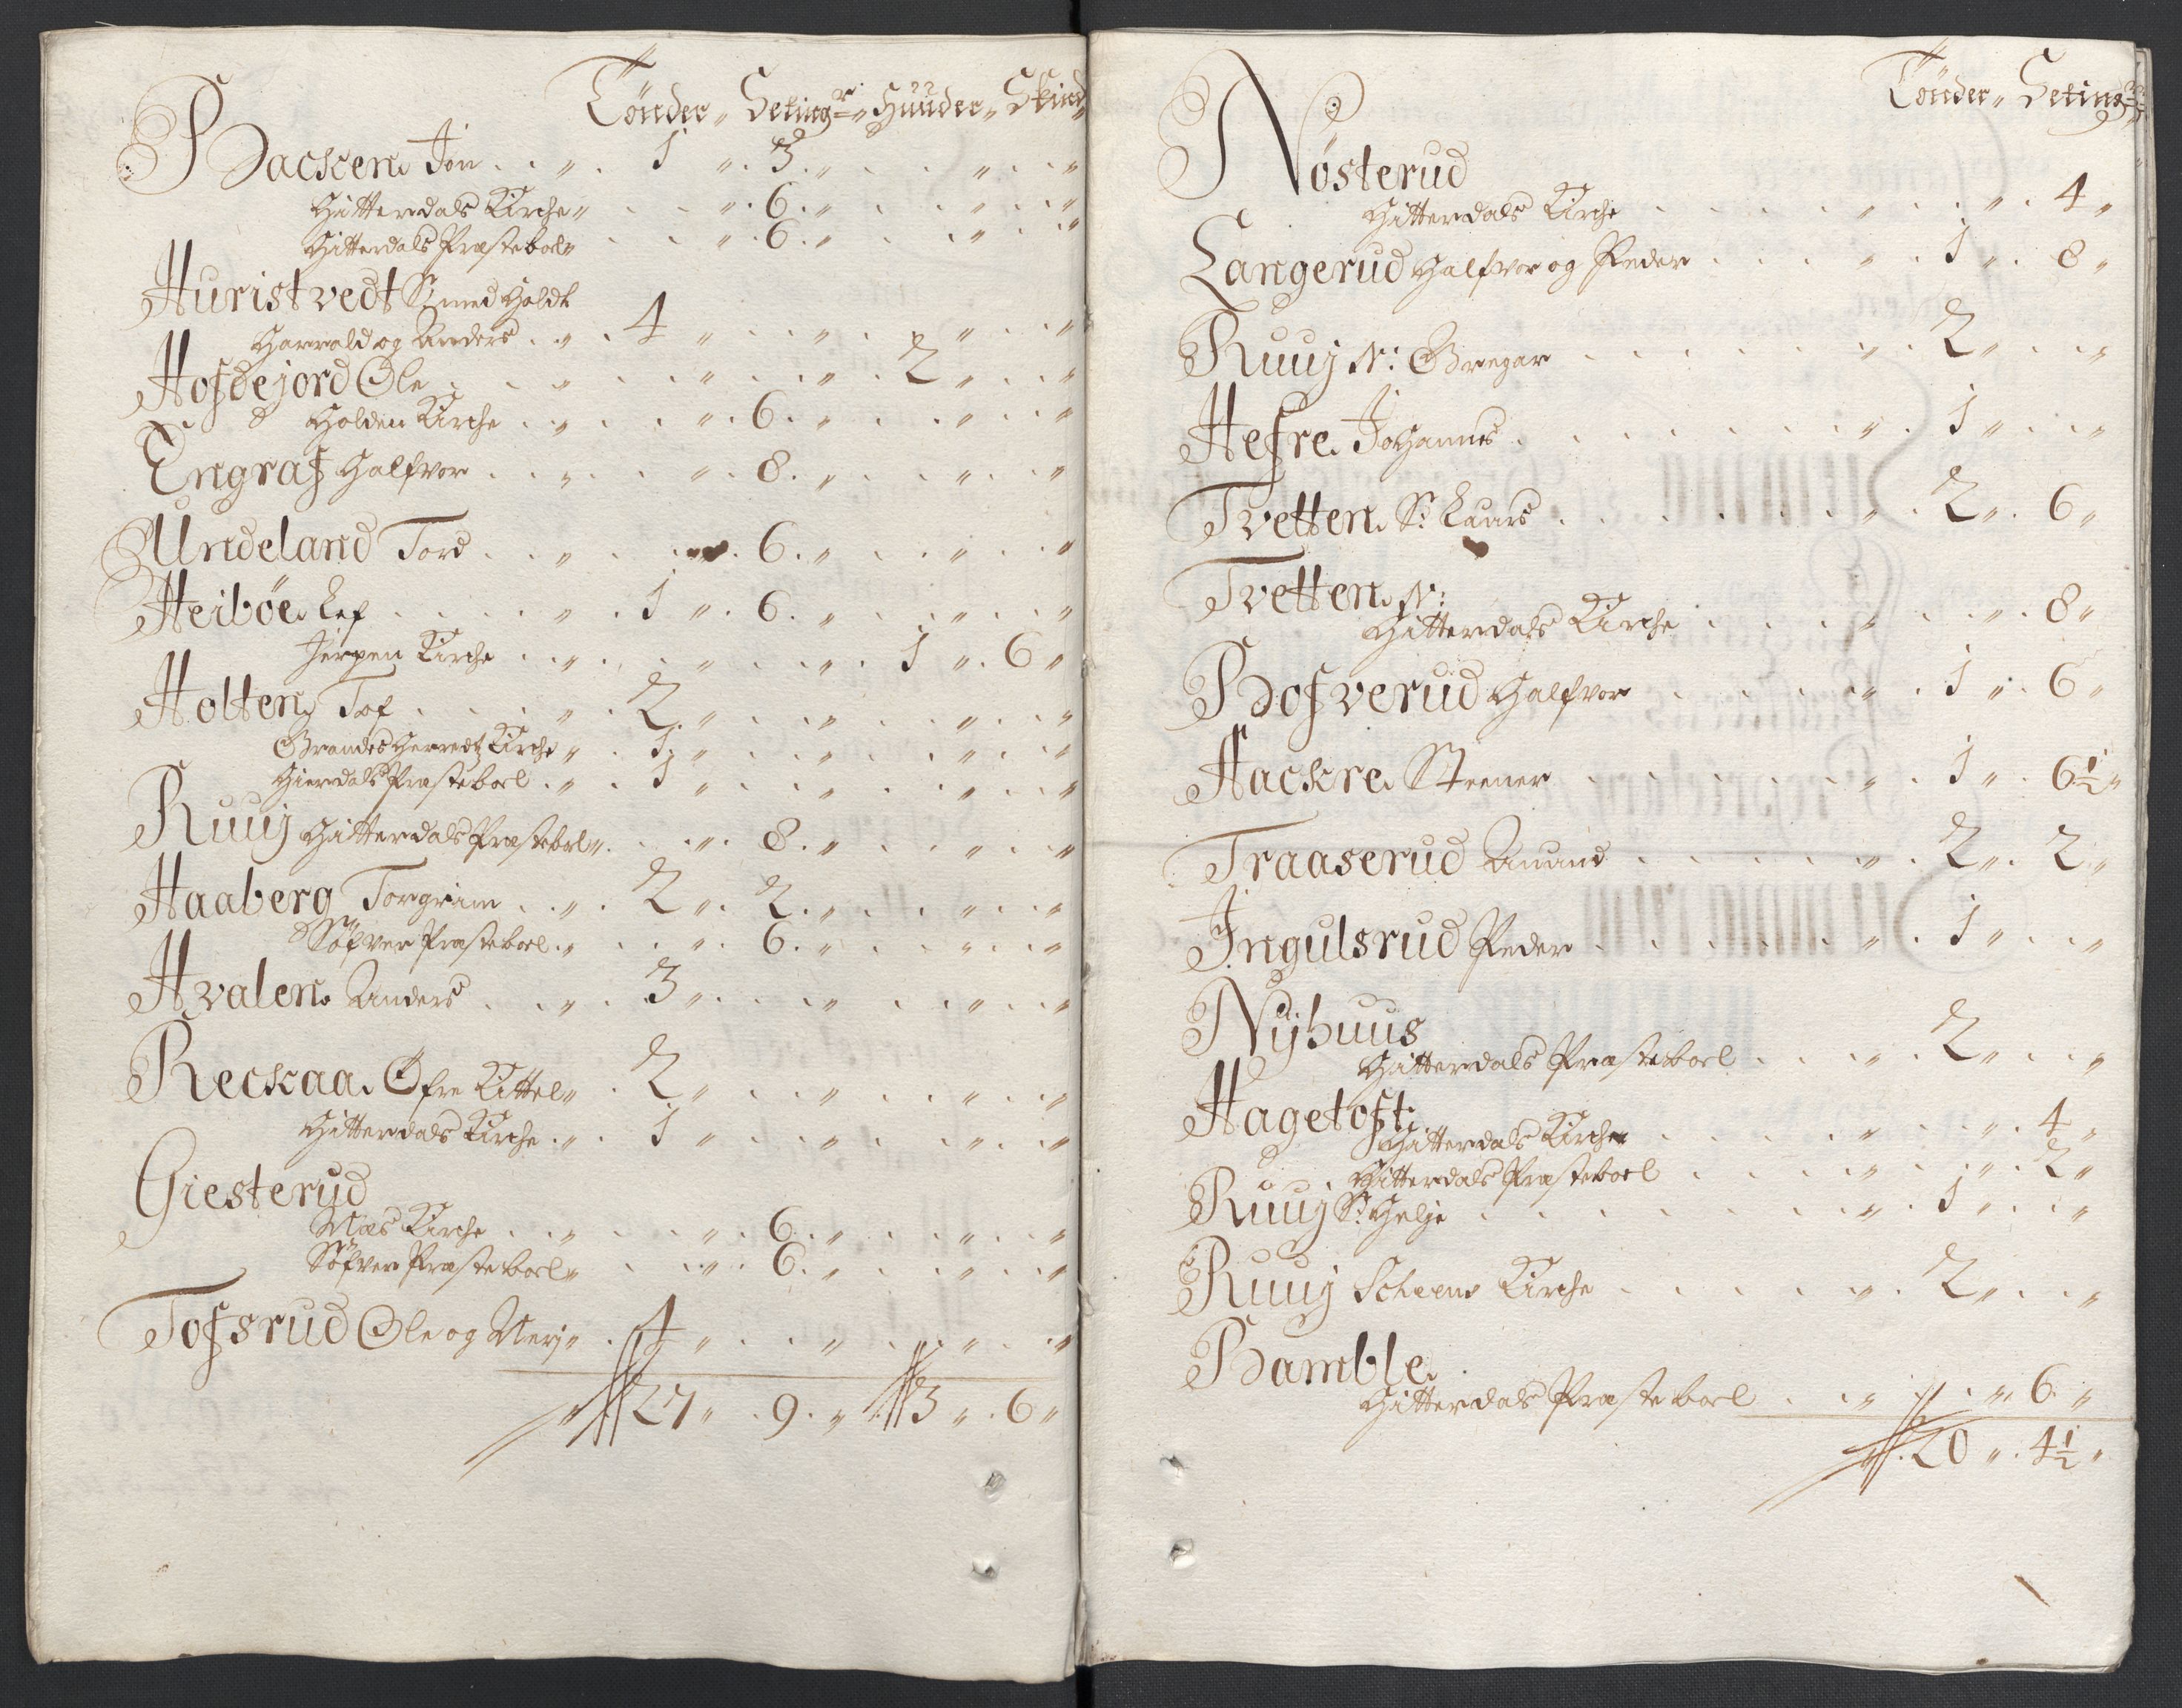 Tönder „ Seting r „ Huuder „ Skind
Backen Jon . . „ . 1 „ . 3 „ . . „ . . „
Hitterdals Kirche „ . . „ . 6 „ . . „ . . „
Hitterdals Præstebol „ . . „ . 6 „ . . „ . . „
Huristvedt Smed Holdt
Harrald og Anders . „ . 4 „ . . „ . „ . . „
Hofdejord Ole . . „ . . „ . . „ . 2 „ . . „
Holden Kirche . „ . . „ . 6 „ . . „ . . „
Engraf Halfvor . . „ . . „ . 8 „ . . „ . . „
Undeland Tord . . „ . . „ . 6 „ . . „ . . „
Heiböe Lef . . . . „ . 1 „ . 6 „ . . „ . . „
Jerpen Kirche . „ . . „ . . „ . 1 „ . 6 „
Holten Tof . . . „ . 2 „ . . „ . . „ . . „
Brandes Herredtz Kirche „ . 1 „ . . „ . . „ . . „
Hierdals Præsteboel . „ . 1 „ . . „ . . „ . . „
Ruuj Hitterdals Præstebol „ . . „ . 8 „ . . „ . . „
Haaberg Torgrim . . „ . 2 „ . 2 „ . . „ . . „
Söfver Præstebol . „ . . „ . 6 „ . . „ . . „
Hvalen Anders . . „ . 3 „ . . „ . . „ . . „
Reckaa Öfre Kittel „ . 2 „ . . „ . . „ . . „
Hitterdals Kirche . „ . 1 „ . . „ . . „ . . „
Giesterud
Mæs Kirche . . „ . . „ . 6 „ . . „ . . „
Söfver Præstebol „ . . „ . 6 „ . . „ . . „
Tofsrud Ole og Nerj „ . 4 „ . . „ . . „ . . „
27 „ . 9 . „ 3 „ . 6 „
Tönder „ Seting
Nösterud
Hitterdals Kirche . . . . „ . . „ . 4 „
Langerud Halfvor og Peder . . . „ . 1 „ . 8 „
Ruuj N: Gregar . . . . . „ . 2 „ . . „
Hefre Johannes . . . . . „ . 1 „ . . „
Tvetten S: Laurs . . . . . „ . 2 „ . 6 „
Tvetten N:
Hitterdals Kirche . . . „ . . „ . 8 „
Bofverud Halfvor . . . . „ . 1 „ . 6 „
Hackre Steener . . . . „ . 1 „ . 6 1/2 „
Traaserud Anund . . . . „ . 2 „ . 2 „
Ingulsrud Peder . . . . „ . 1 „ . . „
Nyhuus
Hitterdals Præstebol . . . „ . 2 „ . . „
Hagetoft
Hitterdals Kirche . . . „ . . „ . 4 „
Hitterdals Præstebol . . . „ . . „ . 2 „
Ruuj S: Helje . . . . . „ . 1 „ . . „
Ruuj Scheens Kirche . . . . „ . 2 „ . . „
Bamble
Hitterdals Præstebol . . „ . . „ 6 „
20 „ . 4 1/2 „